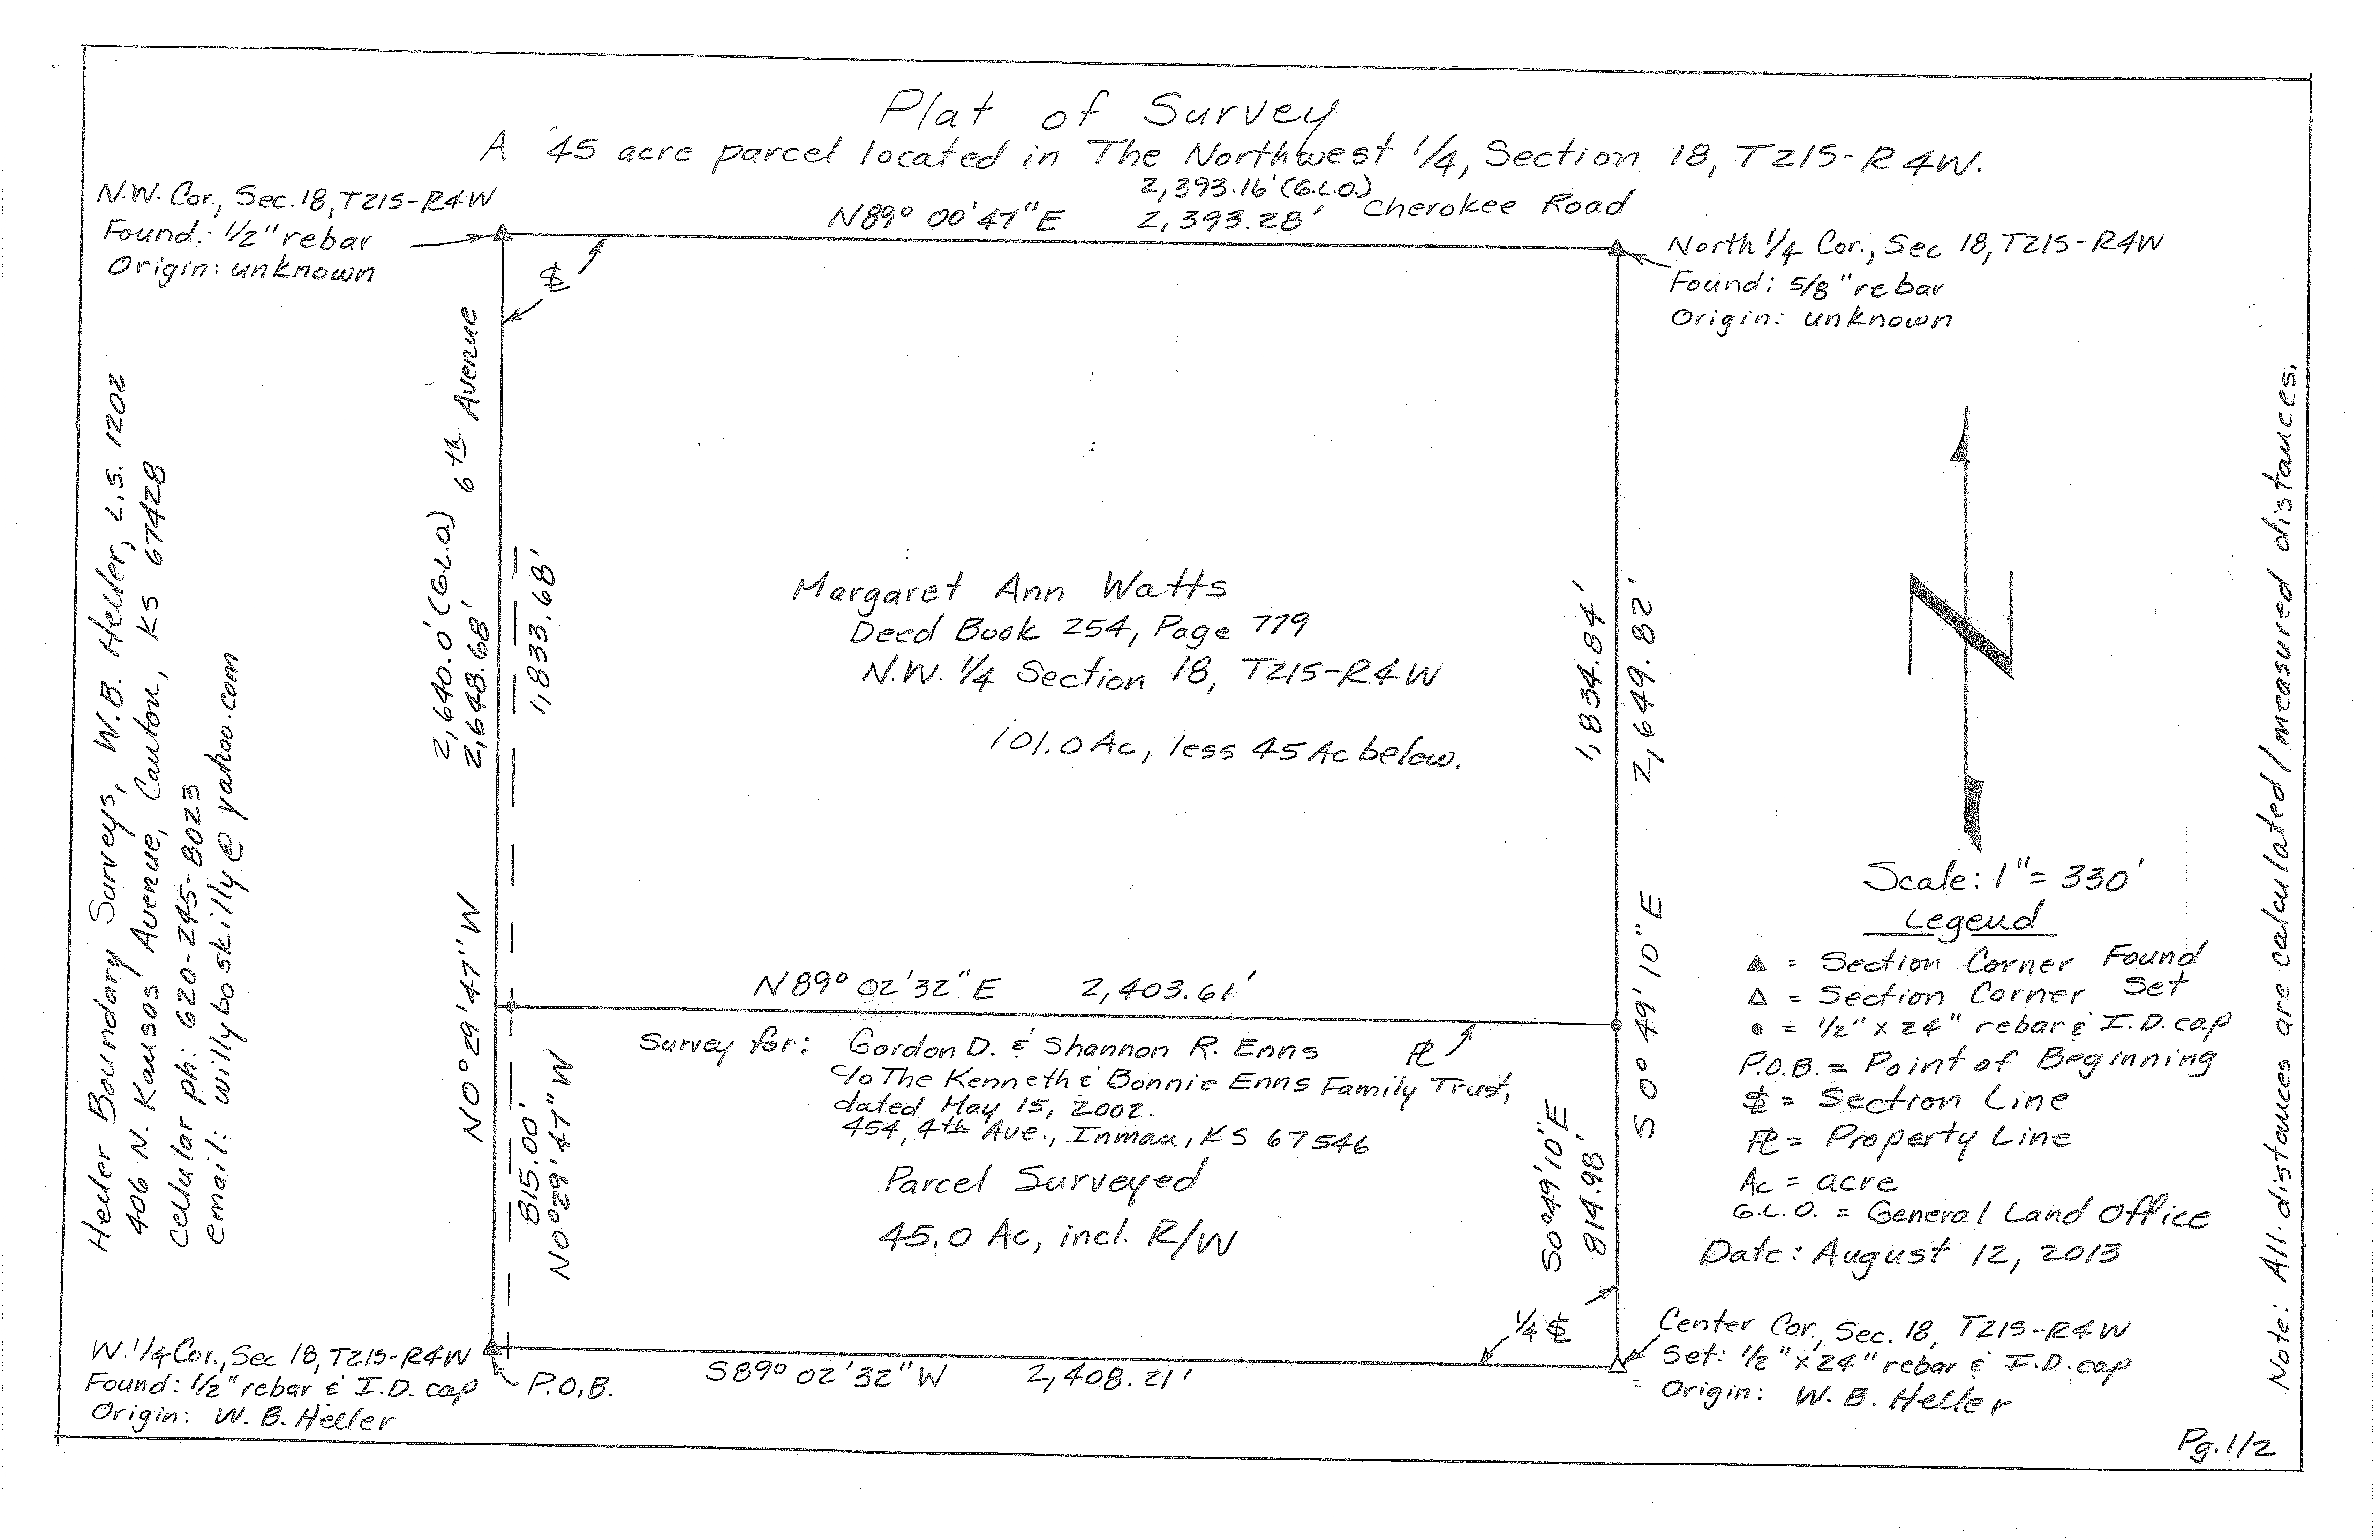 Plat of Survey
A 45 acre parcel located in The Northwest 1/4, Section 18, T21S-R4W.
N.W. Cor., Sec. 18, T21S-R4W
Found: 1/2" rebar
Origin: unknown
2,393.16' (G.L.O.)
N89° 00' 47" E 2,393.28' Cherokee Road
North 1/4 Cor., Sec 18, T21S-R4W
Found: 5/8" rebar
Origin: unknown
Heller Boundary Surveys, W.B. Heller, L.S. 1202
406 N. Kansas Avenue, Canton, KS 67428
Cellular ph: 620-245-8023
email: willyboskilly@yahoo.com
6th Avenue
2,640.0' (G.L.O.)
2,648.68'
N0° 29' 47" W
1,833.68'
Margaret Ann Watts
Deed Book 254, Page 779
N.W. 1/4 Section 18, T21S-R4W
101.0 Ac, less 45 Ac below.
1,834.84'
2,649.82'
S0° 49' 10" E
N89° 02' 32" E 2,403.61'
Survey for: Gordon D. & Shannon R. Enns
c/o The Kenneth & Bonnie Enns Family Trust,
dated May, 15, 2002.
454, 4th Ave., Inman, KS 67546
Parcel Surveyed
45.0 Ac, incl. R/W
PL
815.00'
N0° 29' 47" W
S0° 49' 10" E
814.98'
1/4 SL
S89° 02' 32" W 2,408.21'
W. 1/4 Cor., Sec 18, T21S-R4W
Found: 1/2" rebar & I.D. cap
Origin: W. B. Heller
P.O.B.
N
Scale: 1" = 330'
Legend
▲ = Section Corner Found
△ = Section Corner Set
● = 1/2" x 24" rebar & I.D. cap
P.O.B. = Point of Beginning
SL = Section Line
PL = Property Line
Ac = acre
G.L.O. = General Land Office
Date: August 12, 2013
Center Cor., Sec. 18, T21S-R4W
Set: 1/2" x 24" rebar & I.D. cap
Origin: W. B. Heller
Note: All distances are calculated/measured distances.
Pg. 1/2
SL